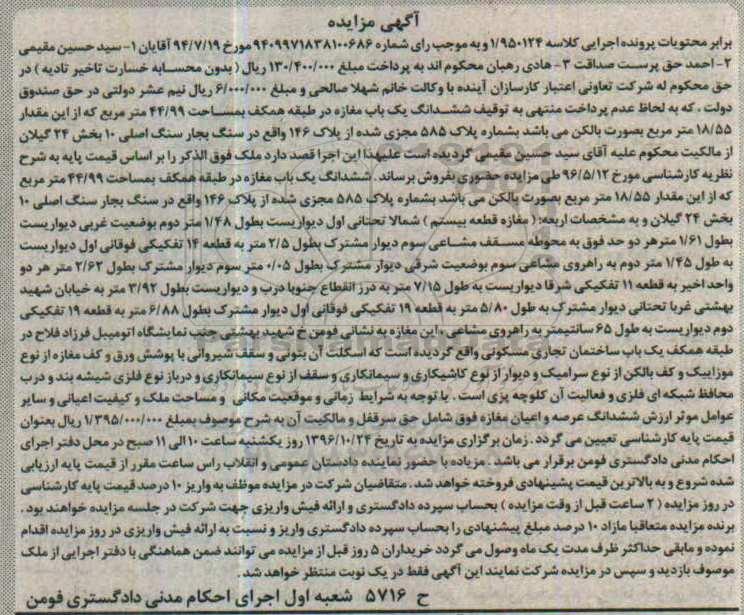 آگهی مزایده
برابر محتویات پرونده اجرایی کلاسه ۱/۹۵۰۱۲۴ و به موجب رای شماره ۹۴۰۹۹۷۱۸۳۸۱۰۰۶۸۶ مورخ ۹۴/۷/۱۹ آقایان ۱- سید حسین مقیمی
۲- احمد حق پرست صداقت ۳- هادی رهبان محکوم اند به پرداخت مبلغ ۱۳۰/۴۰۰/۰۰۰ ریال ( بدون محسابه خسارت تاخیر تادیه ) در
حق محکوم له شرکت تعاونی اعتبار کارسازان آینده با وکالت خانم شهلا صالحی و مبلغ ۶/۰۰۰/۰۰۰ ریال نیم عشر دولتی در حق صندوق
دولت ، که به لحاظ عدم پرداخت منتهی به توقیف ششدانگ یک باب مغازه در طبقه همکف بمساحت ۴۴/۹۹ متر مربع که از این مقدار
۱۸/۵۵ متر مربع بصورت بالکن می باشد بشماره پلاک ۵۸۵ مجزی شده از پلاک ۱۴۶ واقع در سنگ بجار سنگ اصلی ۱۰ بخش ۲۴ گیلان
از مالکیت محکوم علیه آقای سید حسین مقیمی گردیده است علیهذا این اجرا قصد دارد ملک فوق الذکر را بر اساس قیمت پایه به شرح
نظریه کارشناسی مورخ ۹۶/۵/۱۲ طی مزایده حضوری بفروش برساند . ششدانگ یک باب مغازه در طبقه همکف بمساحت ۴۴/۹۹ متر مربع
که از این مقدار ۱۸/۵۵ متر مربع بصورت بالکن می باشد بشماره پلاک ۵۸۵ مجزی شده از پلاک ۱۴۶ واقع در سنگ بجار سنگ اصلی ۱۰
بخش ۲۴ گیلان و به مشخصات اربعه: ( مغازه قطعه بیستم ) شمالا تحتانی اول دیواریست بطول ۱/۴۸ متر دوم بوضعیت غربی دیواریست
بطول ۱/۶۱ متر هر دو حد فوق به محوطه مسقف مشاعی سوم دیوار مشترک بطول ۲/۵ متر به قطعه ۱۴ تفکیکی فوقانی اول دیواریست
به طول ۱/۴۵ متر دوم به راهروی مشاعی سوم بوضعیت شرقی دیوار مشترک بطول ۰/۰۵ متر سوم دیوار مشترک بطول ۲/۶۲ متر هر دو
واحد اخیر به قطعه ۱۱ تفکیکی شرقا دیواریست به طول ۷/۱۵ متر به درز انقطاع جنوبا درب و دیواریست بطول ۳/۹۲ متر به خیابان شهید
بهشتی غربا تحتانی دیوار مشترک به طول ۵/۸۰ متر به قطعه ۱۹ تفکیکی فوقانی اول دیوار مشترک بطول ۶/۸۸ متر به قطعه ۱۹ تفکیکی
دوم دیواریست به طول ۶۵ سانتیمتر به راهروی مشاعی ، این مغازه به نشانی فومن خ شهید بهشتی جنب نمایشگاه اتومبیل فرزاد فلاح در
طبقه همکف یک باب ساختمان تجاری مسکونی واقع گردیده است که اسکلت آن بتونی و سقف شیروانی با پوشش ورق و کف مغازه از نوع
موزاییک و کف بالکن از نوع سرامیک و دیوار از نوع کاشیکاری و سیمانکاری و سقف از نوع سیمانکاری و درباز نوع فلزی شیشه بند و درب
محافظ شبکه ای فلزی و فعالیت آن کلوچه پزی است . با توجه به شرایط زمانی و موقعیت مکانی و مساحت ملک و کیفیت اعیانی و سایر
عوامل موثر ارزش ششدانگ عرصه و اعیان مغازه فوق شامل حق سرقفل و مالکیت آن به شرح موصوف بمبلغ ۱/۳۹۵/۰۰۰/۰۰۰ ریال بعنوان
قیمت پایه کارشناسی تعیین می گردد . زمان برگزاری مزایده به تاریخ ۱۳۹۶/۱۰/۲۴ روز یکشنبه ساعت ۱۰ الی ۱۱ صبح در محل دفتر اجرای
احکام مدنی دادگستری فومن برقرار می باشد . مزیاده با حضور نماینده دادستان عمومی و انقلاب راس ساعت مقرر از قیمت پایه ارزیابی
شده شروع و به بالاترین قیمت پیشنهادی فروخته خواهد شد . متقاضیان شرکت در مزایده موظف به واریز ۱۰ درصد قیمت پایه کارشناسی
در روز مزایده ( ۲ ساعت قبل از وقت مزایده ) بحساب سپرده دادگستری و ارائه فیش واریزی جهت شرکت در جلسه مزایده خواهند بود .
برنده مزایده متعاقبا مازاد ۱۰ درصد مبلغ پیشنهادی را بحساب سپرده دادگستری واریز و نسبت به ارائه فیش واریزی در روز مزایده اقدام
نموده و مابقی حداکثر ظرف مدت یک ماه وصول می گردد خریداران ۵ روز قبل از مزایده می توانند ضمن هماهنگی با دفتر اجرایی از ملک
موصوف بازدید و سپس در مزایده شرکت نمایند این آگهی فقط در یک نوبت منتظر خواهد شد .
ح ۵۷۱۶ شعبه اول اجرای احکام مدنی دادگستری فومن